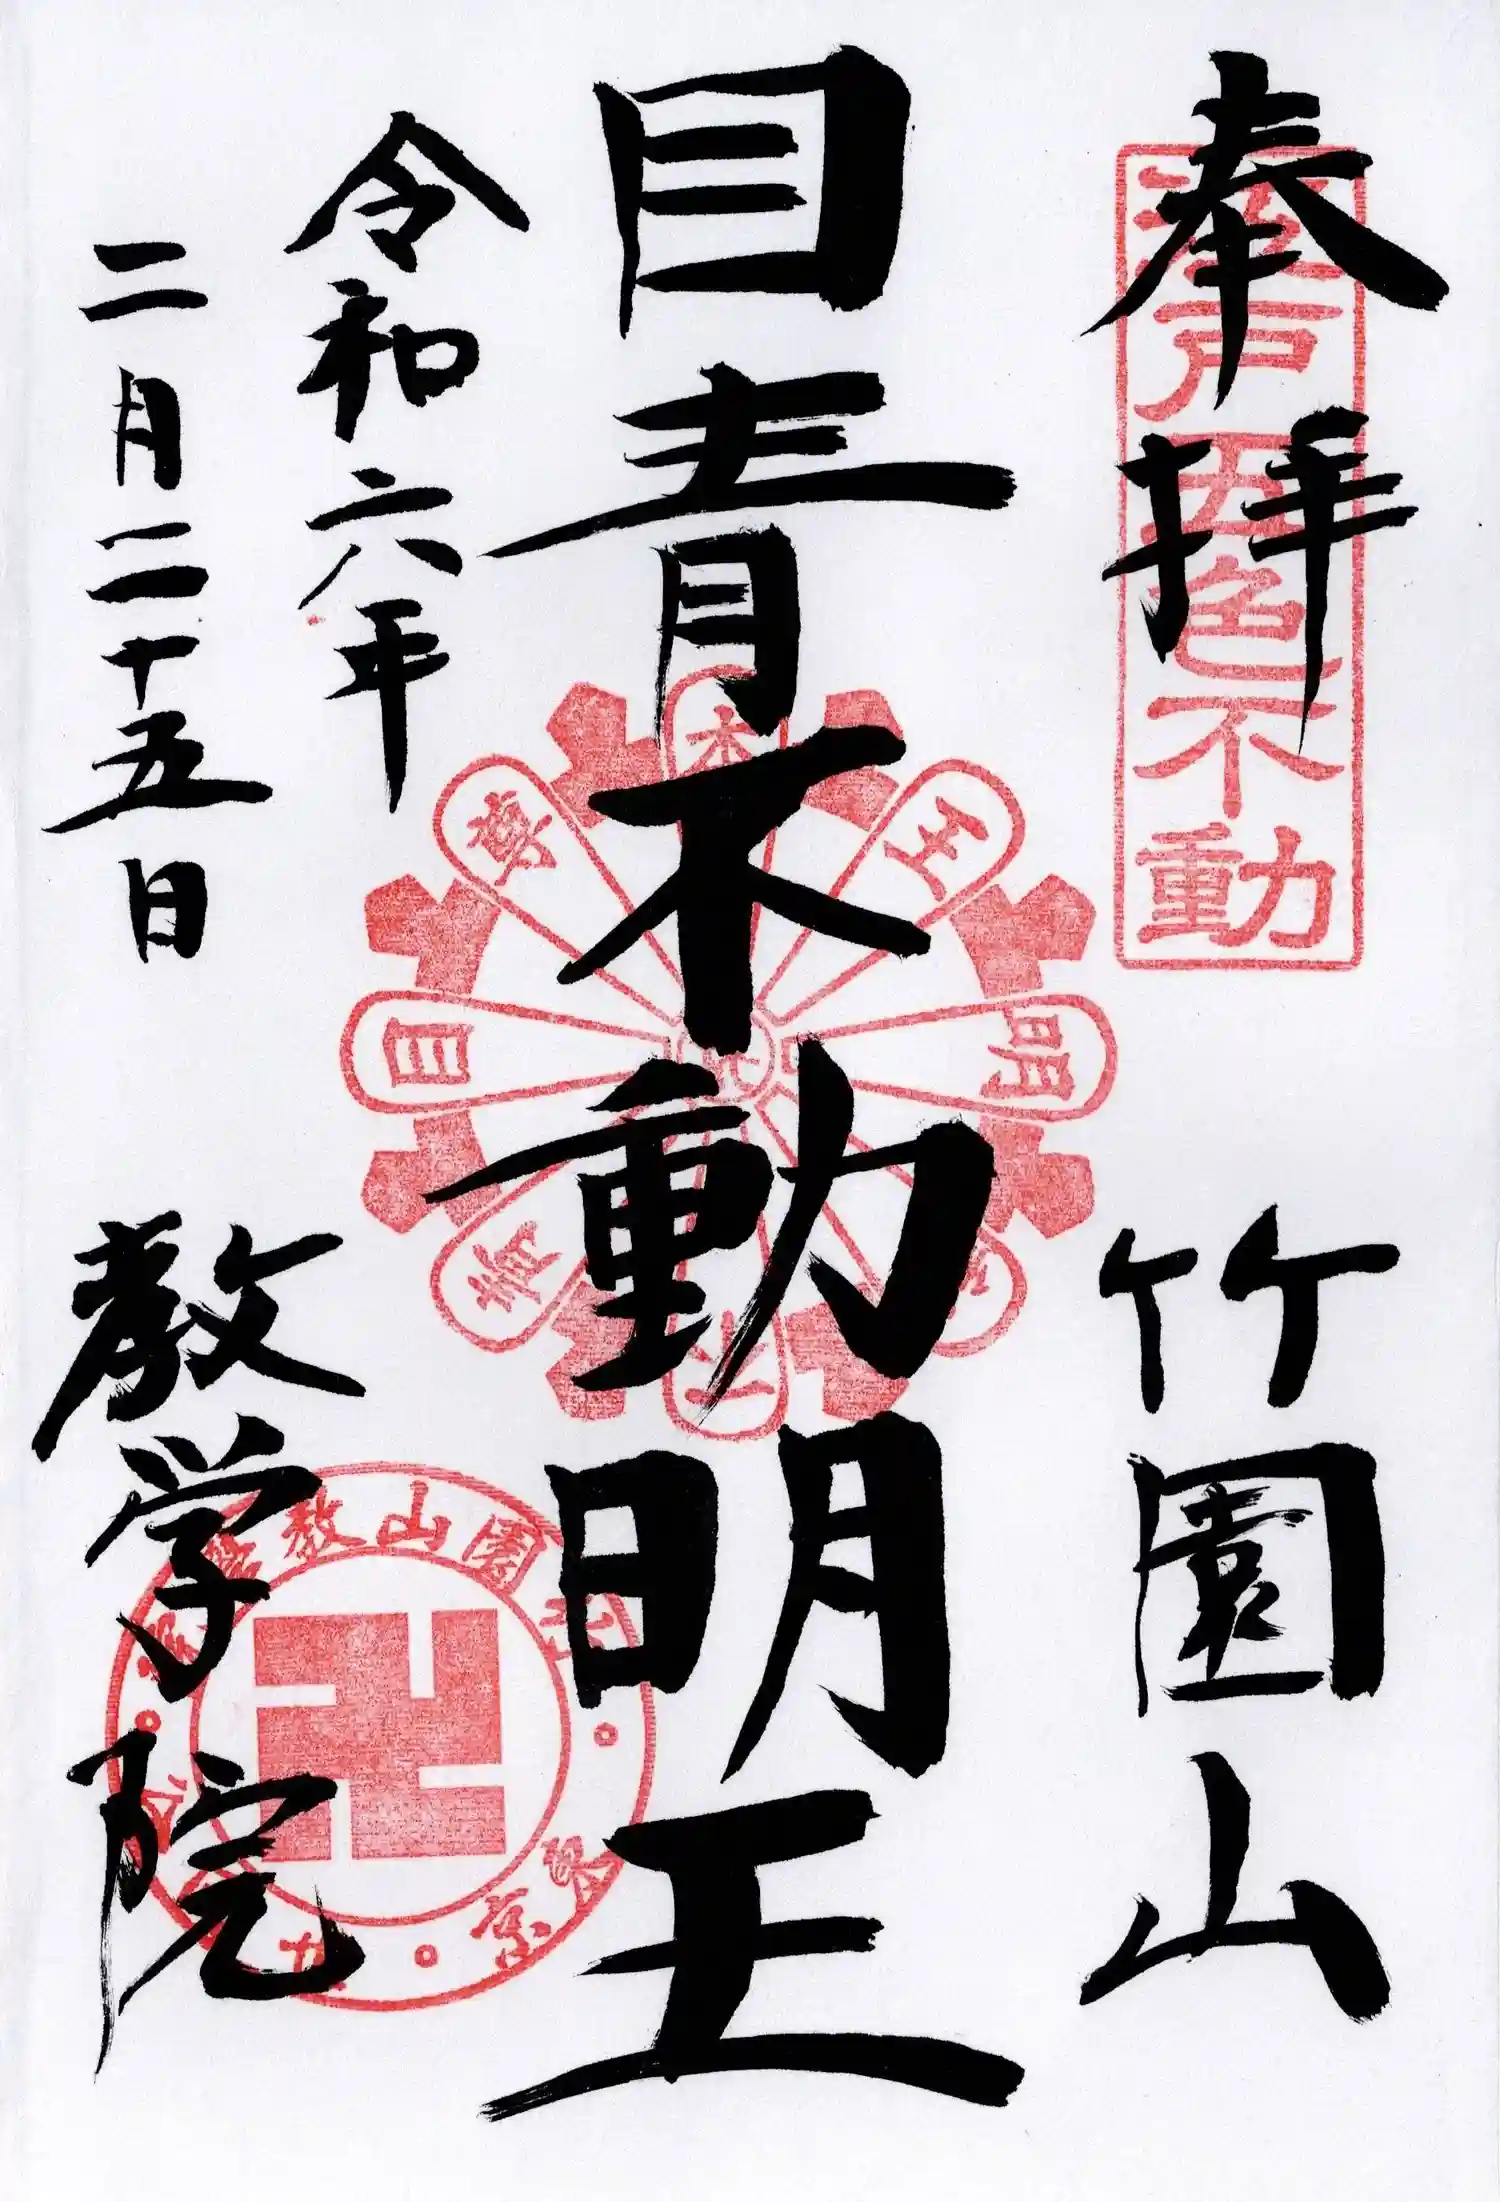 奉拝
江戸五色不動
竹園山
目青不動明王
本尊 目青不動明王
令和六年
二月二十五日
教学院